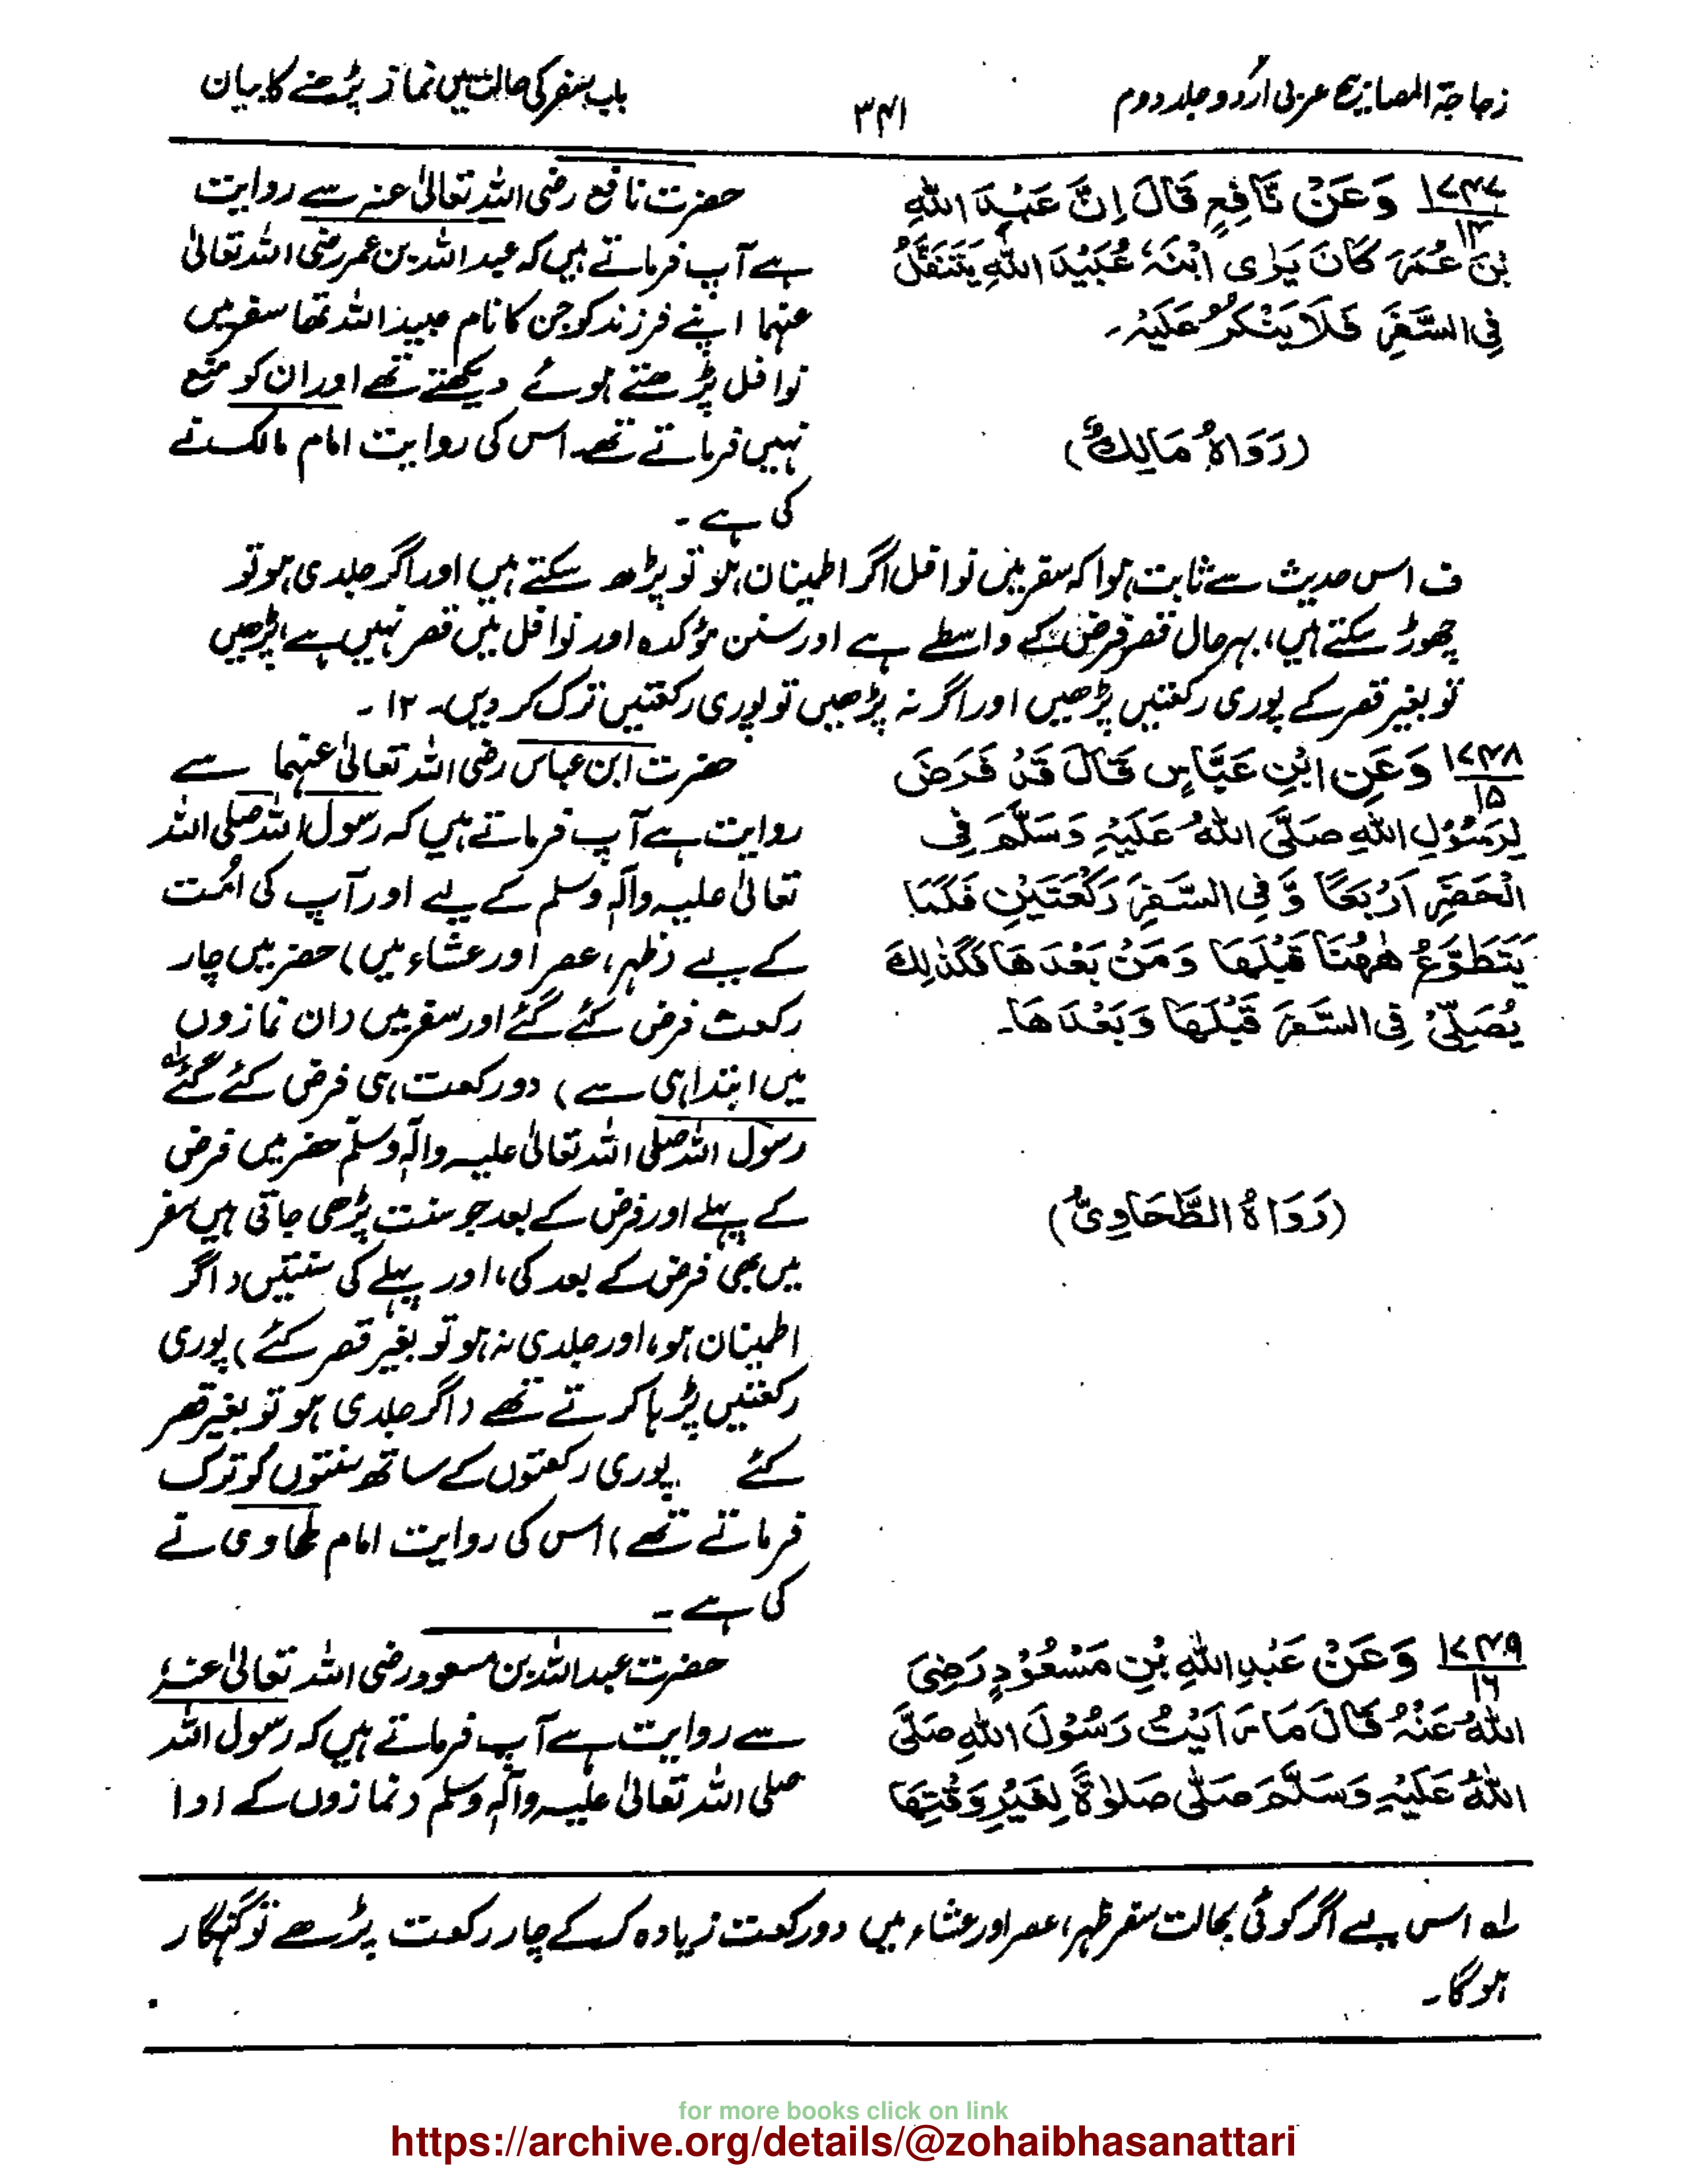 زجاجۃ المصابیح عربی اردو جلد دوم
۳۴۱
باب سفر کی حالت میں نماز پڑھنے کا بیان
۱۷۴۷ وَعَنْ نَّافِعٍ قَالَ اِنَّ عَبْدَ اللّٰهِ
۱۴
بْنَ عُمَرَ كَانَ يَرٰى ابْنَهٗ عُبَيْدَ اللّٰهِ يَتَنَفَّلُ
فِي السَّفَرِ فَلَا يَنْكُرُ عَلَيْهِ۔
(رَوَاهُ مَالِكٌ)
حضرت نافع رضی اللہ تعالیٰ عنہ سے روایت
ہے آپ فرماتے ہیں کہ عبد اللہ بن عمر رضی اللہ تعالیٰ
عنہما اپنے فرزند کو جن کا نام عبید اللہ تھا سفر میں
نوافل پڑھتے ہوئے دیکھتے تھے اور ان کو منع
نہیں فرماتے تھے۔ اس کی روایت امام مالک نے
کی ہے۔
ف اس حدیث سے ثابت ہوا کہ سفر میں نوافل اگر اطمینان ہو تو پڑھ سکتے ہیں اور اگر جلدی ہو تو
چھوڑ سکتے ہیں، بہر حال قصر فرض کے واسطے ہے اور سنن مؤکدہ اور نوافل میں قصر نہیں ہے، پڑھیں
تو بغیر قصر کے پوری رکعتیں پڑھیں اور اگر نہ پڑھیں تو پوری رکعتیں ترک کر دیں۔ ۱۲۔
۱۷۴۸ وَعَنِ ابْنِ عَبَّاسٍ قَالَ قَدْ فَرَضَ
۱۵
لِرَسُوْلِ اللّٰهِ صَلَّى اللّٰهُ عَلَيْهِ وَسَلَّمَ فِى
الْحَضَرِ اَرْبَعًا وَّفِى السَّفَرِ رَكْعَتَيْنِ فَكَمَا
يَتَطَوَّعُ هٰهُنَا قَبْلَهَا وَمَنْ بَعْدَهَا فَكَذٰلِكَ
يُصَلِّىْ فِى السَّفَرِ قَبْلَهَا وَبَعْدَهَا۔
(رَوَاهُ الطَّحَاوِىُّ)
حضرت ابن عباس رضی اللہ تعالیٰ عنہما سے
روایت ہے آپ فرماتے ہیں کہ رسول اللہ صلی اللہ
تعالیٰ علیہ وآلہ وسلم کے لیے اور آپ کی امت
کے لیے (ظہر، عصر اور عشاء میں) حضر میں چار
رکعت فرض کئے گئے اور سفر میں (ان نمازوں
میں ابتدا ہی سے) دو رکعت ہی فرض کئے گئے ؎۱
رسول اللہ صلی اللہ تعالیٰ علیہ وآلہ وسلم حضر میں فرض
کے پہلے اور فرض کے بعد جو سنت پڑھی جاتی ہیں سفر
میں بھی فرض کے بعد کی، اور پہلے کی سنتیں (اگر
اطمینان ہو، اور جلدی نہ ہو تو بغیر قصر کئے) پوری
رکعتیں پڑہا کرتے تھے (اگر جلدی ہو تو بغیر قصر
کئے پوری رکعتوں کے ساتھ سنتوں کو ترک
فرماتے تھے) اس کی روایت امام طحاوی نے
کی ہے۔
۱۷۴۹ وَعَنْ عَبْدِ اللّٰهِ بْنِ مَسْعُوْدٍ رَضِىَ
۱۶
اللّٰهُ عَنْهُ قَالَ مَا رَاَيْتُ رَسُوْلَ اللّٰهِ صَلَّى
اللّٰهُ عَلَيْهِ وَسَلَّمَ صَلّٰى صَلٰوةً لِغَيْرِ وَقْتِهَا
حضرت عبد اللہ بن مسعود رضی اللہ تعالیٰ عنہٗ
سے روایت ہے آپ فرماتے ہیں کہ رسول اللہ
صلی اللہ تعالیٰ علیہ وآلہ وسلم (نمازوں کے ادا
؎۱ اس لیے اگر کوئی بحالت سفر ظہر، عصر اور عشاء میں دو رکعت زیادہ کر کے چار رکعت پڑھے تو گنہگار
ہو گا۔
for more books click on link
https://archive.org/details/@zohaibhasanattari